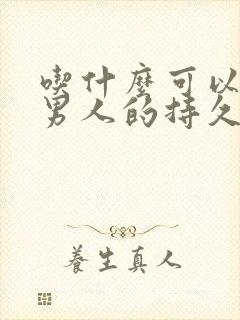 喫什麼可以
男人的持久
養生真人